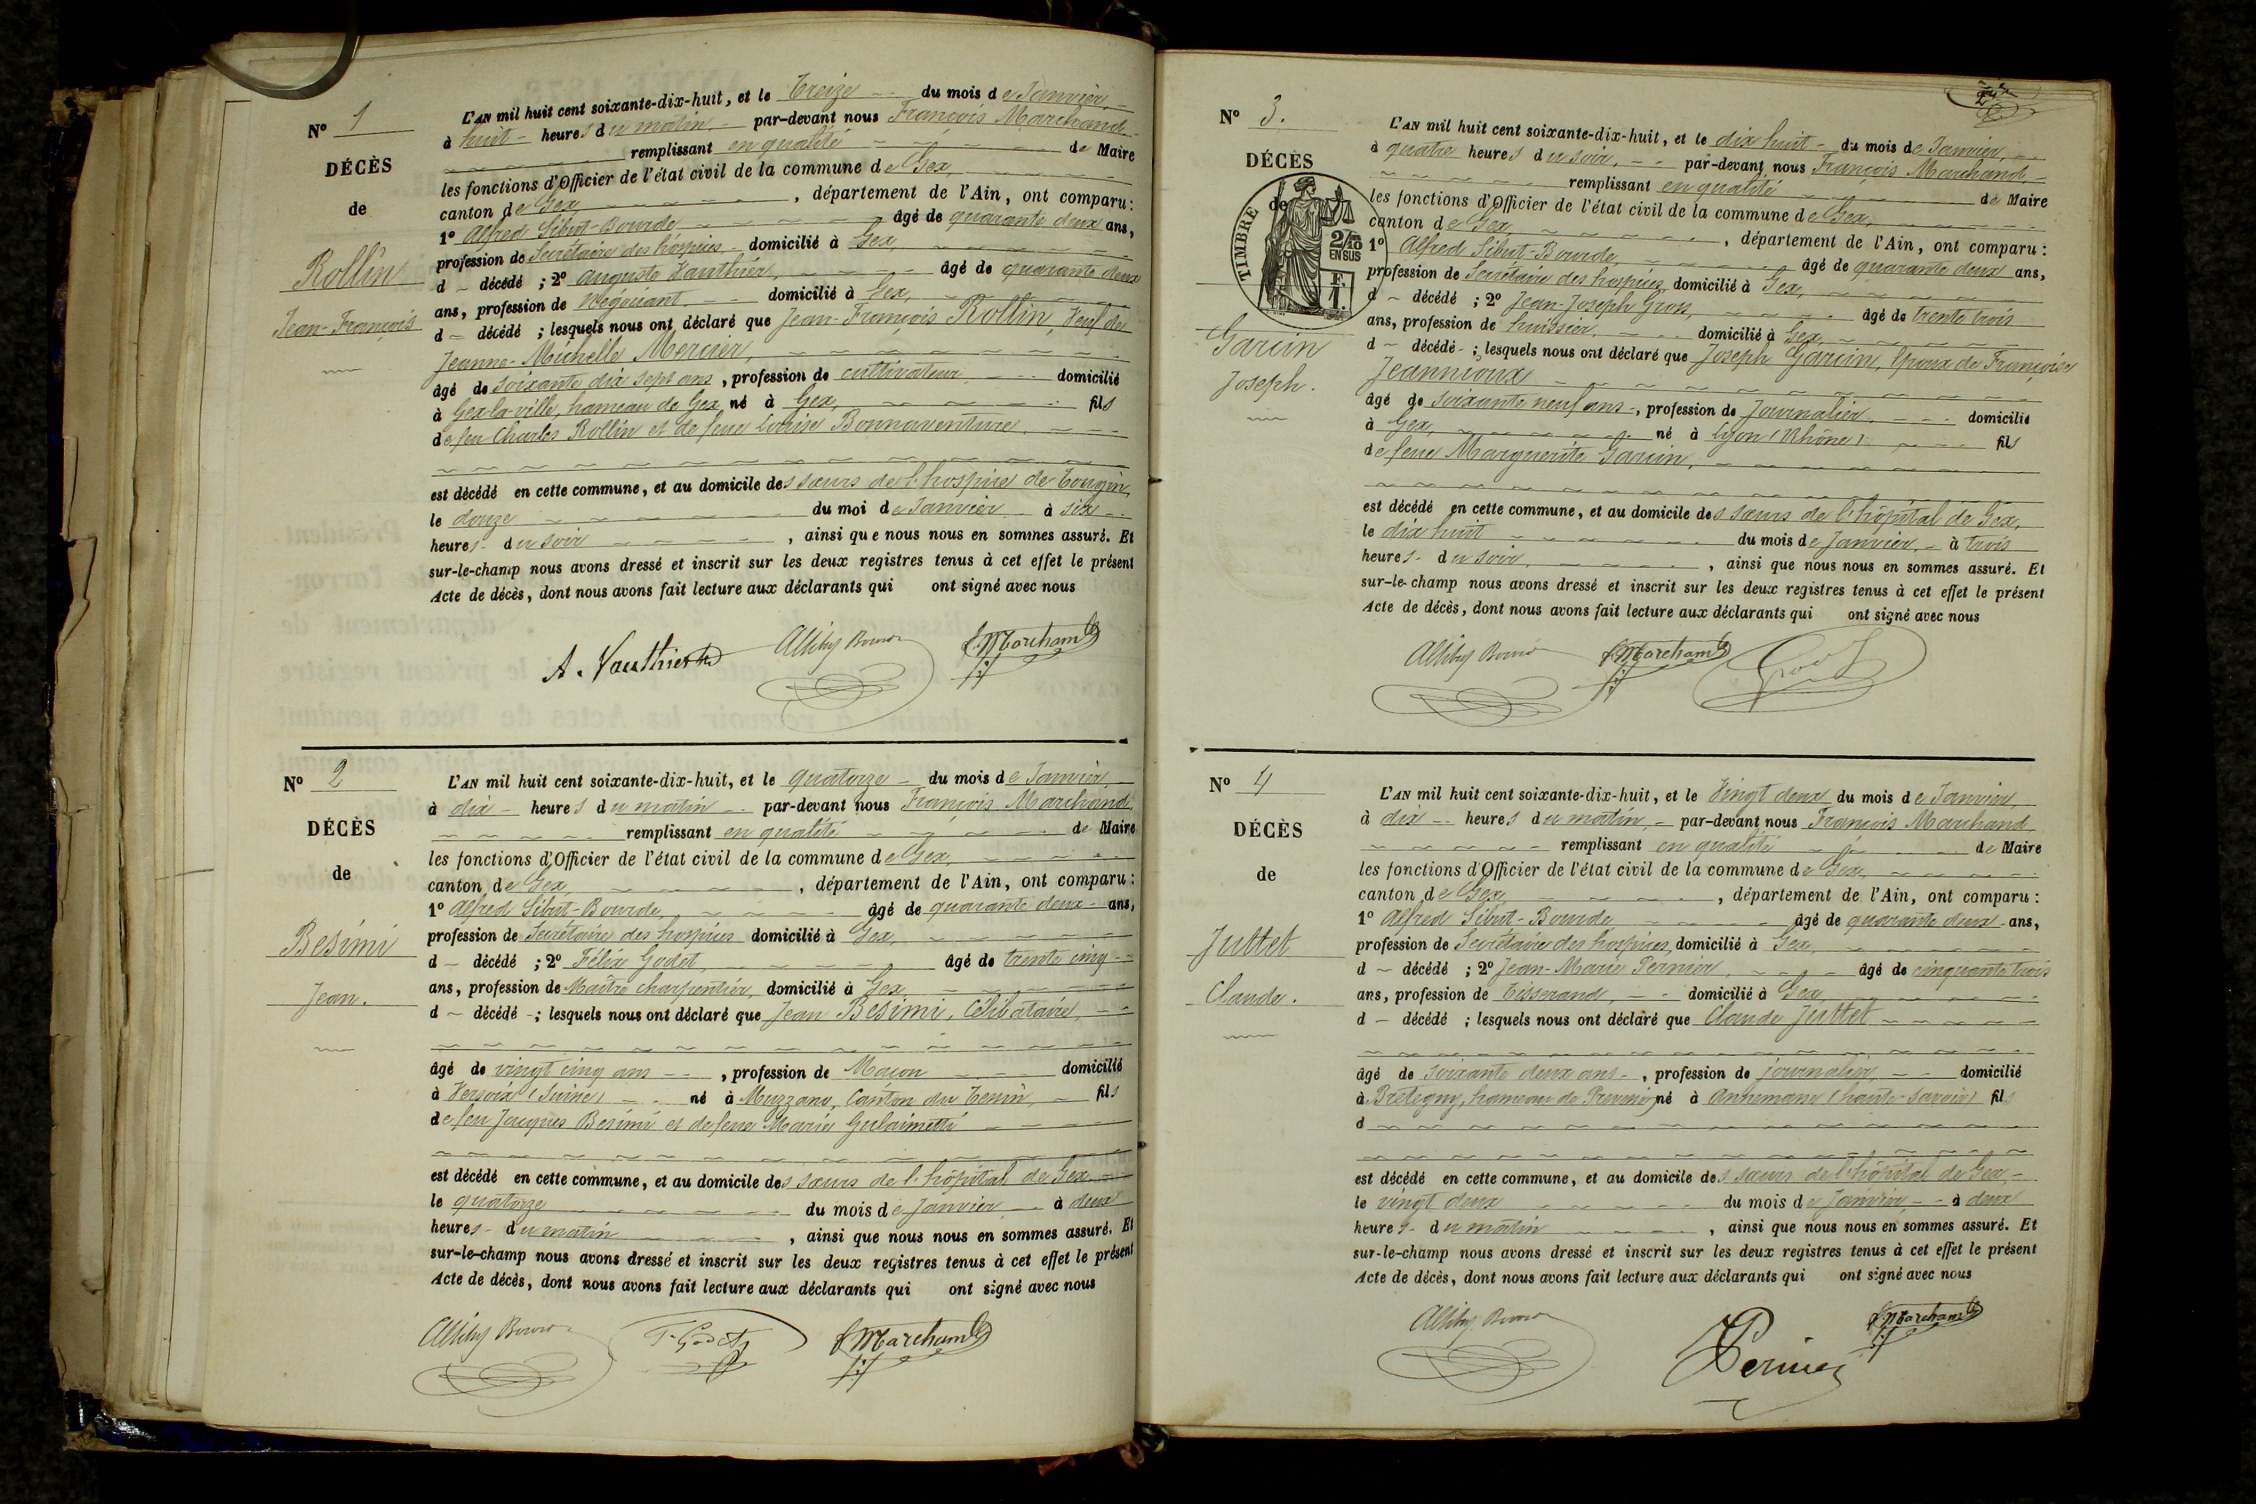 Nº 1
DÉCÈS
de
Rollin
Jean-François
L'AN mil huit cent soixante-dix-huit, et le Treize du mois de Janvier,
à huit heures du matin par-devant nous François Marchand
remplissant en qualité de Maire
les fonctions d'Officier de l'état civil de la commune de Gex,
canton de Gex, département de l'Ain, ont comparu :
1º Alfred Sibut-Bourde, âgé de quarante deux ans,
profession de Secrétaire des hospices domicilié à Gex
d décédé ; 2º Auguste Vauthier, âgé de quarante deux
ans, profession de Négociant domicilié à Gex,
d décédé ; lesquels nous ont déclaré que Jean-François Rollin, Veuf de
Jeanne-Michelle Mercier,
âgé de soixante dix sept ans, profession de cultivateur domicilié
à Gex-la-ville, hameau de Gex né à Gex, fils
de feu Charles Rollin et de feue Louise Bonnaventure
est décédé en cette commune, et au domicile des sœurs de l'hospice de Tougin,
le douze du moi de Janvier à six
heures du soir, ainsi que nous nous en sommes assuré. Et
sur-le-champ nous avons dressé et inscrit sur les deux registres tenus à cet effet le présent
Acte de décès, dont nous avons fait lecture aux déclarants qui ont signé avec nous
A. Vauthier ASibut Bourde f. Marchand
Nº 2
DÉCÈS
de
Besimi
Jean.
L'AN mil huit cent soixante-dix-huit, et le quatorze du mois de Janvier,
à dix heures du matin par-devant nous François Marchand
remplissant en qualité de Maire
les fonctions d'Officier de l'état civil de la commune de Gex,
canton de Gex, département de l'Ain, ont comparu :
1º Alfred Sibut-Bourde, âgé de quarante deux ans,
profession de Secrétaire des hospices domicilié à Gex,
d décédé ; 2º Félix Godet, âgé de trente cinq
ans, profession de Maître charpentier, domicilié à Gex,
d décédé ; lesquels nous ont déclaré que Jean Besimi, Célibataire,
âgé de vingt cinq ans, profession de Maçon domicilié
à Versoix (Suisse) né à Muzzano, Canton du Tessin, fils
de feu Jacques Besimi et de feue Marie
est décédé en cette commune, et au domicile des sœurs de l'hôpital de Gex
le quatorze du mois de Janvier à deux
heures du matin, ainsi que nous nous en sommes assuré. Et
sur-le-champ nous avons dressé et inscrit sur les deux registres tenus à cet effet le présent
Acte de décès, dont nous avons fait lecture aux déclarants qui ont signé avec nous
ASibut Bourde F. Godet f. Marchand
Nº 3.
DÉCÈS
de
TIMBRE
2/10 EN SUS
F. 1.
Garcin
Joseph.
L'AN mil huit cent soixante-dix-huit, et le dix huit du mois de Janvier,
à quatre heures du soir, par-devant nous François Marchand,
remplissant en qualité de Maire
les fonctions d'Officier de l'état civil de la commune de Gex,
canton de Gex, département de l'Ain, ont comparu :
1º Alfred Sibut-Bourde, âgé de quarante deux ans,
profession de Secrétaire des hospices domicilié à Gex,
d décédé ; 2º Jean-Joseph Gros, âgé de trente trois
ans, profession de huissier, domicilié à Gex,
d décédé ; lesquels nous ont déclaré que Joseph Garcin, époux de Françoise
Jeannioux
âgé de soixante neuf ans, profession de Journalier domicilié
à Gex, né à Lyon (Rhône) fils
de feue Marguerite Garcin,
est décédé en cette commune, et au domicile des sœurs de l'hôpital de Gex,
le dix huit du mois de Janvier, à trois
heures du soir, ainsi que nous nous en sommes assuré. Et
sur-le-champ nous avons dressé et inscrit sur les deux registres tenus à cet effet le présent
Acte de décès, dont nous avons fait lecture aux déclarants qui ont signé avec nous
ASibut Bourde f. Marchand Gros J
Nº 4
DÉCÈS
de
Juttet
Claude.
L'AN mil huit cent soixante-dix-huit, et le Vingt deux du mois de Janvier,
à dix heures du matin, par-devant nous François Marchand
remplissant en qualité de Maire
les fonctions d'Officier de l'état civil de la commune de Gex,
canton de Gex, département de l'Ain, ont comparu :
1º Alfred Sibut-Bourde âgé de quarante deux ans,
profession de Secrétaire des hospices, domicilié à Gex,
d décédé ; 2º Jean-Marie Pernier, âgé de cinquante trois
ans, profession de Tisserand, domicilié à Gex,
d décédé ; lesquels nous ont déclaré que Claude Juttet
âgé de soixante deux ans, profession de journalier, domicilié
à Bretigny, hameau de né à Annemasse (haute-Savoie) fils
d
est décédé en cette commune, et au domicile des sœurs de l'hôpital de Gex,
le vingt deux du mois de Janvier, à deux
heures du matin, ainsi que nous nous en sommes assuré. Et
sur-le-champ nous avons dressé et inscrit sur les deux registres tenus à cet effet le présent
Acte de décès, dont nous avons fait lecture aux déclarants qui ont signé avec nous
ASibut Bourde Pernier f. Marchand